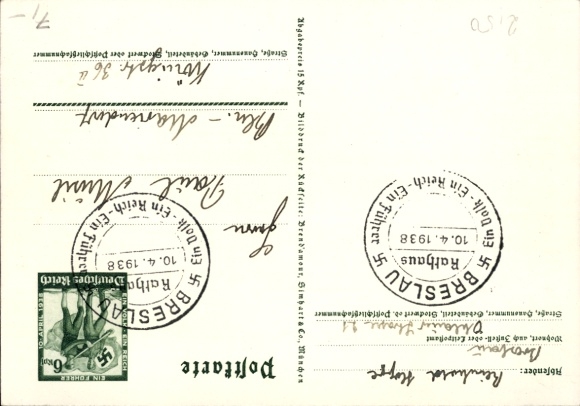 Absender: Reinhold Hoppe
Breslau
Wohnort, auch Zustell- oder Leitpostamt
Straße, Hausnummer, Gebäudeteil, Stockwerk oder Postschließfachnummer
BRESLAU
Rathaus
10.4.1938
Ein Volk - Ein Reich - Ein Führer
2,50
Abgabepreis 15 Rpf. — Bilddruck der Rückseite: Brend'amour, Simhart & Co., München
Postkarte
6 Rpf
EIN FÜHRER
EIN VOLK EIN REICH
10. APRIL 1938
Deutsches Reich
BRESLAU
Rathaus
10.4.1938
Ein Volk - Ein Reich - Ein Führer
Herrn
Paul
Bln. - Mariendorf
Königstr. 36
Straße, Hausnummer, Gebäudeteil, Stockwerk oder Postschließfachnummer
7,-